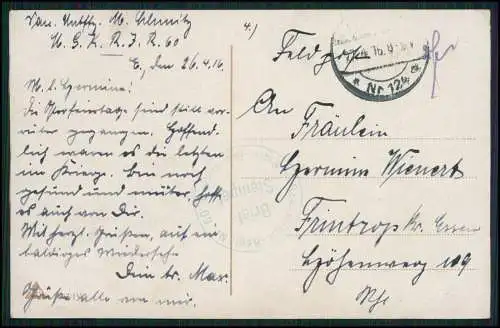 San. Untffz. M. Schmitz
R. J. R. 60
E, den 26.4.16.
M. l. Hermine!
Die Osterfeiertage sind still vor-
über gegangen. Hoffend-
lich waren es die letzten
im Kriege. Bin noch
gesund und munter, hoffe
es auch von Dir.
Mit herzl. Grüßen, auf ein
baldiges Wiedersehn
Dein tr. Max.
Grüße alle von mir.
4.)
Feldpost
Nr. 124
An
Fräulein
Hermine Wienert
Frintrop Kr. Essen
Höhenweg 109
Rhl.
Brief